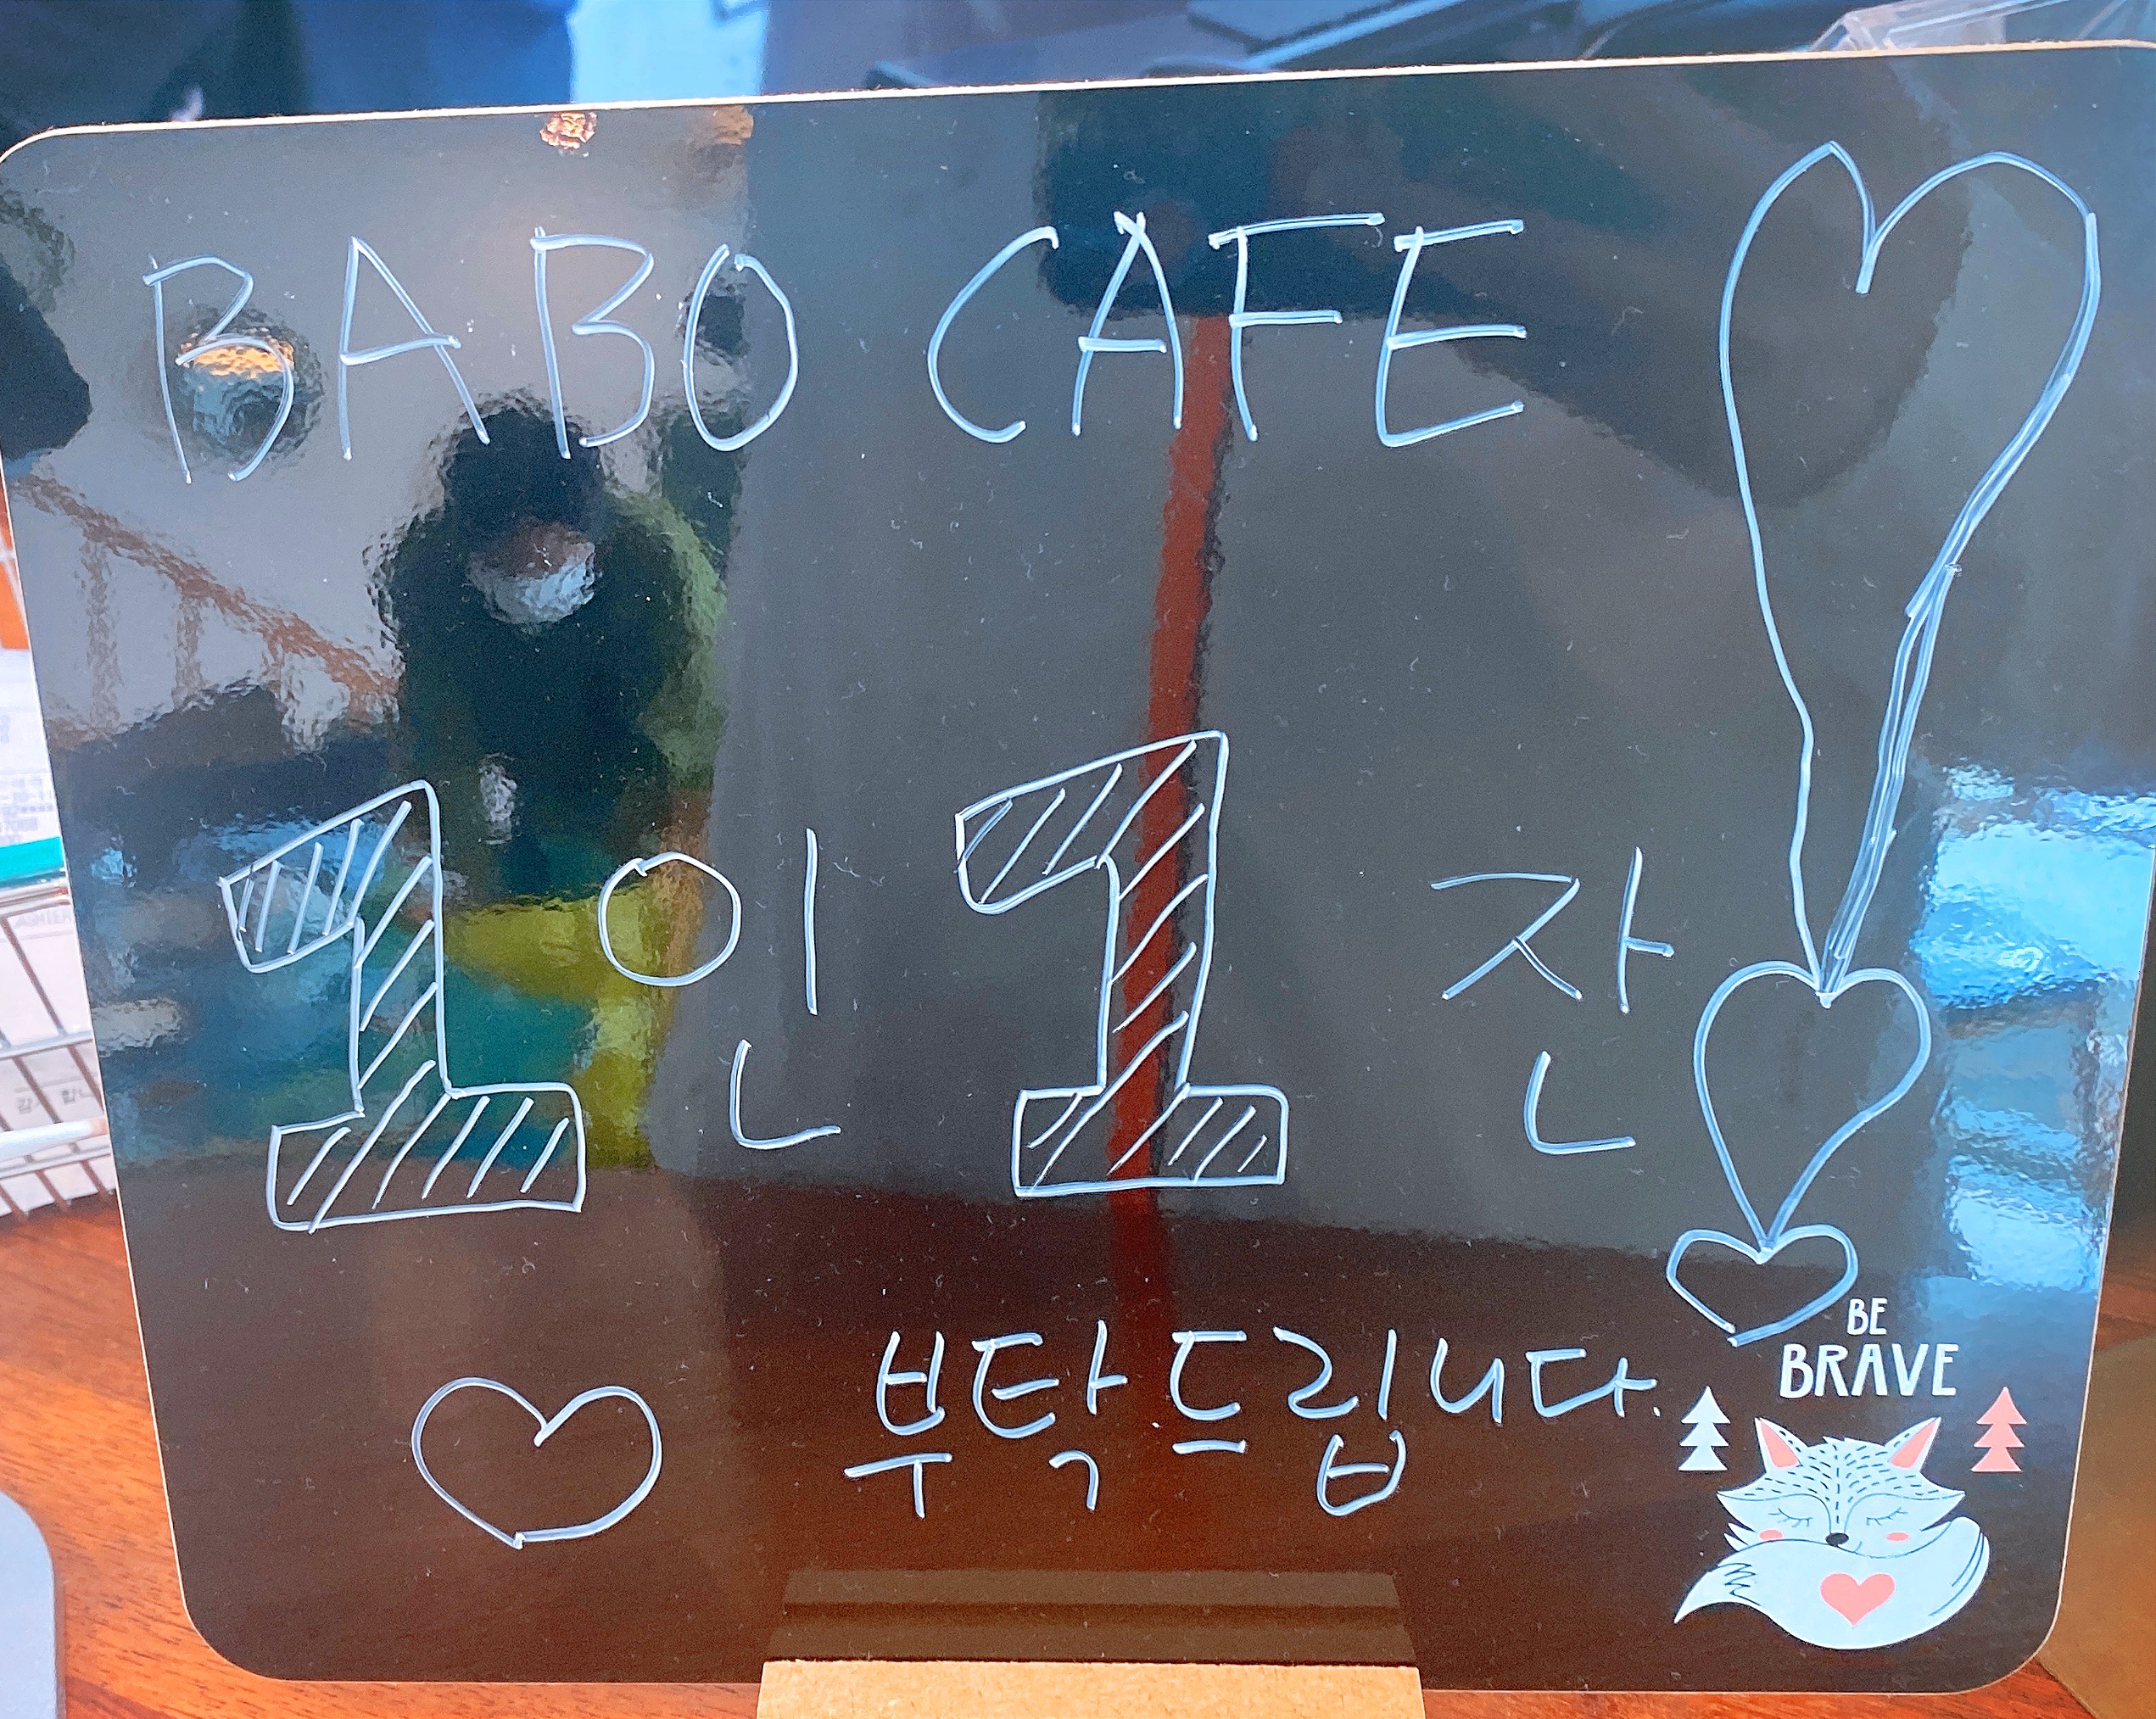 BABO CAFE
1인 1잔
부탁드립니다.
BE
BRAVE